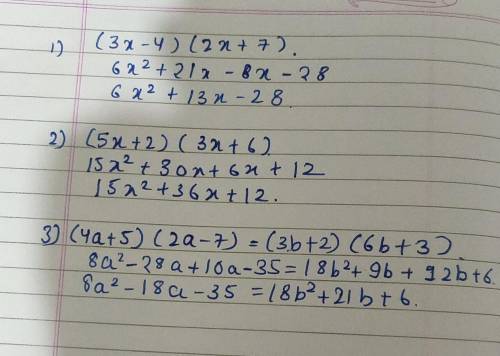 1) (3x-4) (2x+7).
6x² + 21x - 8x - 28
6x² + 13x - 28.
2) (5x+2) (3x+6)
15x² + 30x + 6x + 12
15x² + 36x + 12.
3) (4a+5) (2a-7) = (3b+2) (6b+3).
8a² - 28a + 10a - 35 = 18b² + 9b + 12b + 6.
8a² - 18a - 35 = 18b² + 21b + 6.